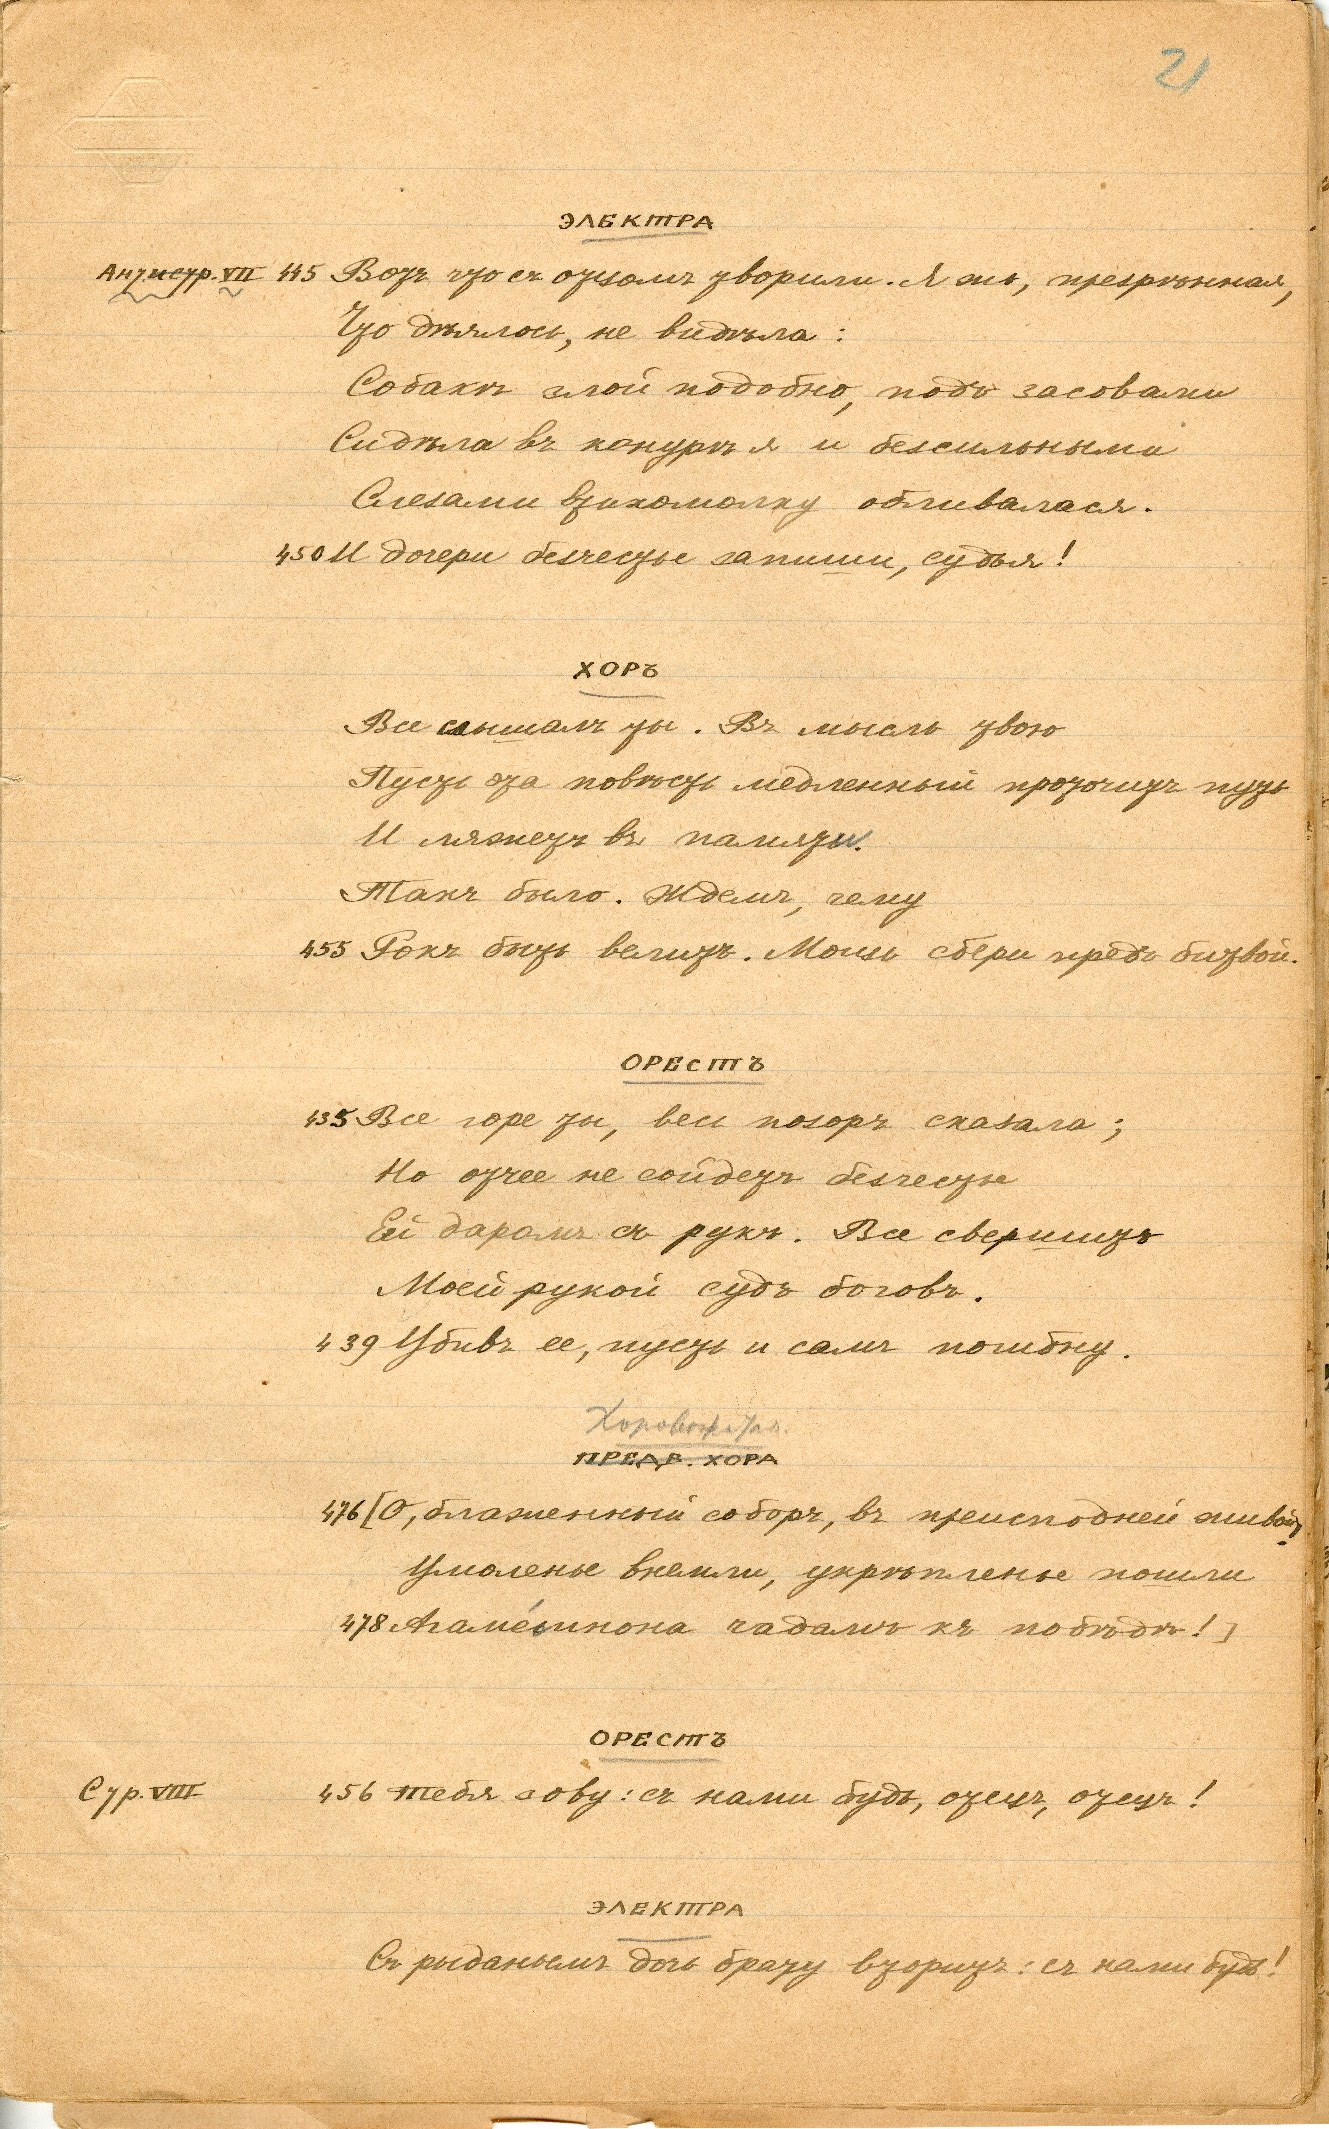 21
ЭЛЕКТРА
Антистр. VII 445 Вотъ что съ отцомъ творили. Я жъ, презрѣнная,
Что дѣялось, не видѣла:
Собакѣ злой подобно, подъ засовами
Сидѣла въ конурѣ я и безсильными
Слезами втихомолку обливалася.
450 И дочери безчестье запиши, судья!
ХОРЪ
Все слышалъ ты. Въ мысль твою
Пусть эта повѣсть медленный проточитъ путь
И ляжетъ въ память.
Такъ было. Ждемъ, чему
455 Рокъ быть велитъ. Мощь сбери предъ битвой.
ОРЕСТЪ
435 Все горе ты, весь позоръ сказала;
Но отчее не сойдетъ безчестье
Ей даромъ съ рукъ. Все свершитъ
Моей рукой судъ боговъ.
439 Убивъ ее, пусть и самъ погибну.
ПРЕДВ. ХОРА
476 [О, блаженный соборъ, въ преисподней живой,
Умоленье внемли, укрѣпленье пошли
478 Агаме́мнона чадамъ къ побѣдѣ!]
ОРЕСТЪ
Стр. VIII 456 Тебя зову: съ нами будь, отецъ, отецъ!
ЭЛЕКТРА
Съ рыданьемъ дочь брату вторитъ: съ нами будь!